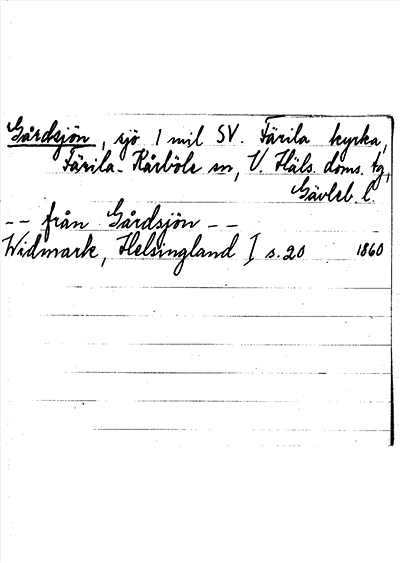 Gårdsjön, sjö 1 mil SV. Färila kyrka,
Färila-Kårböle sn, V. Häls. doms. tg,
Gävleb. l.
-- från Gårdsjön --
Widmark, Helsingland I s. 20 1860